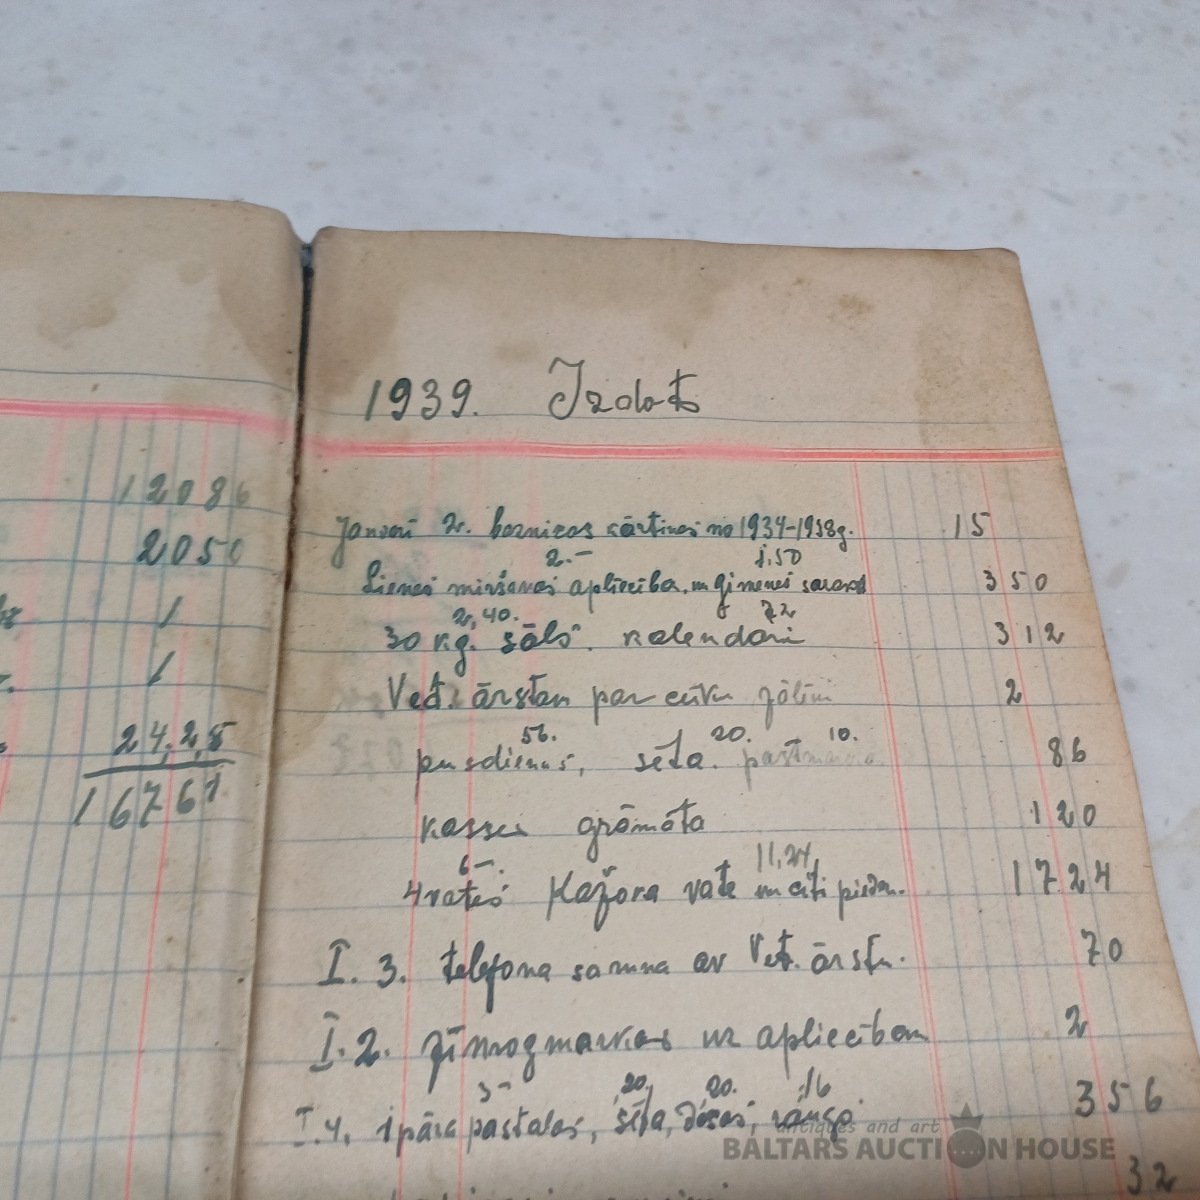 12086
2050
/
/
24,25
16761
1939. Izdots
Janvarī 2. baznicas kārtinas no 1934-1938g. 15
2.- 1.50
Lienes miršanas aplieciba, un ģimenes sarakst 350
2,40. 72
30 kg. sāls. kalendari 312
Vet. ārstam par cūku zālēm 2
56. 20. 10.
pusdienas, sēta. pastmarka 86
kasses grāmata 120
6- 11,24
4 rates Kažoka vate un citi pieder. 1724
I. 3. telefona saruna ar Vet. ārstu. 70
I. 2. zīmogmarkas uz apliecibam 2
3- 20. 20. 16
I. 4. 1 pāra pastalas, sēta, desas, 356
32
antiques and art
BALTARS AUCTION HOUSE